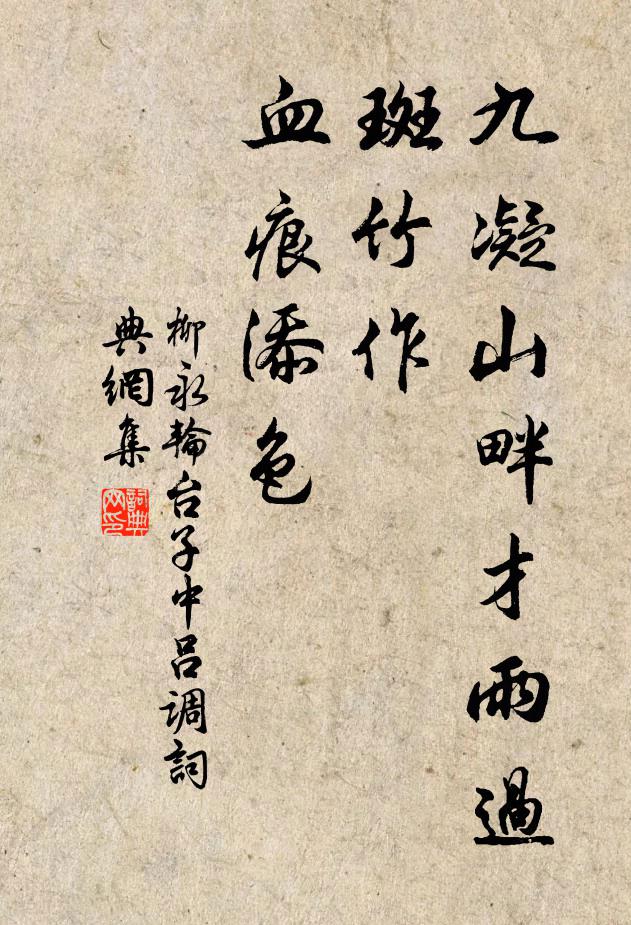 九凝山畔才雨過
斑竹作
血痕添色
柳永輪台子中呂调詞
典網集
詞典
网印